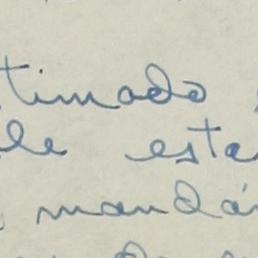 timado
le esta
mandá